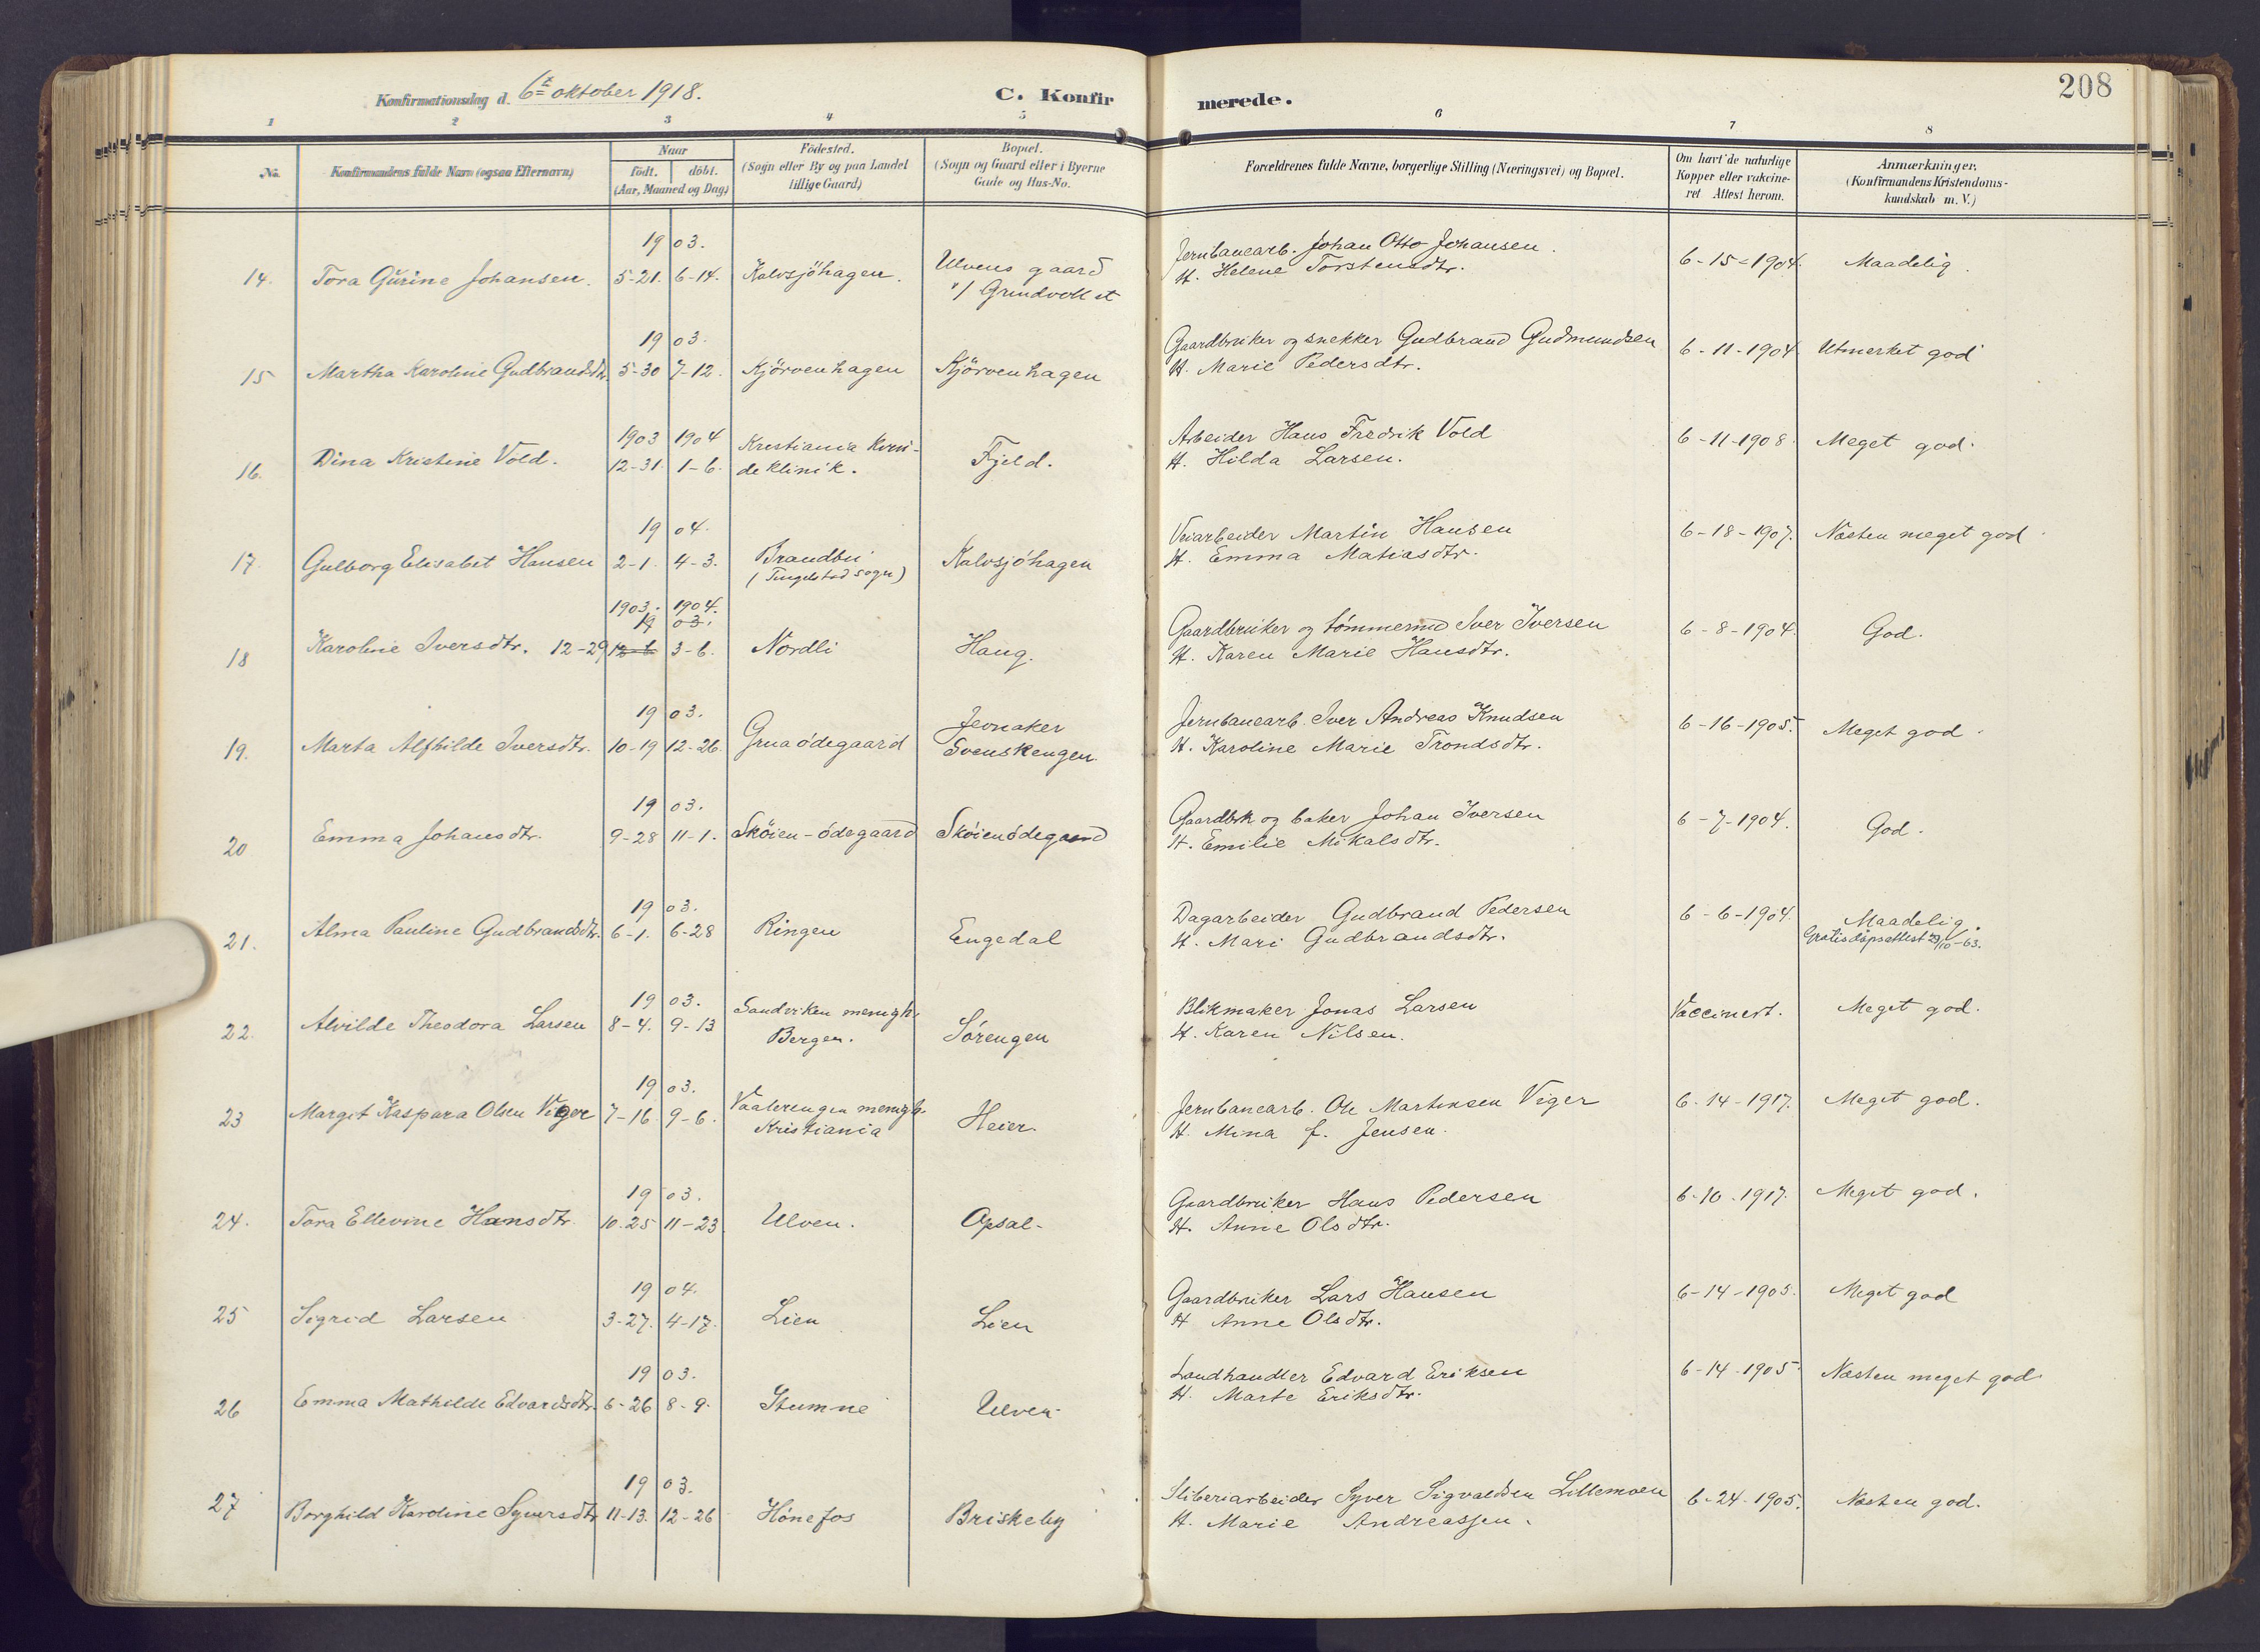 208
Konfirmationsdag d. 6te oktober 1918.
C. Konfirmerede.
1 2 3 4 5 6 7 8
No. | Konfirmandens fulde Navn (ogsaa Efternavn) | Naar födt. döbt. (Aar, Maaned og Dag) | Födested. (Sogn eller By og paa Landet tillige Gaard) | Bopæl. (Sogn og Gaard eller i Byerne Gade og Hus-No. | Forældrenes fulde Navne, borgerlige Stilling (Næringsvei) og Bopæl. | Om havt de naturlige Kopper eller vakcineret Attest herom. | Anmærkninger. (Konfirmandens Kristendomskundskab m. V.)
14. Tora Gurine Johansen. 1903. 5-21. 6-14. Kalvsjöhagen. Ulvens gaard v/ Grindvoll st
Jernbanearb. Johan Otto Johansen.
H. Helene Torstensdtr.
6-15-1904. Maadelig.
15 Martha Karoline Gudbrandsdtr. 1903. 5-30 7-12. Kjörvenhagen Kjörvenhagen
Gaardbruker og snekker Gudbrand Gudmundsen
H. Marie Pedersdtr.
6-11-1904. Utmerket god
16. Dina Kristine Vold. 1903 12-31. 1904 1-6. Kristiania kvindeklinik. Fjeld.
Arbeider Hans Fredrik Vold
H. Hilda Larsen.
6-11-1908. Meget god.
17. Gulborg Elisabet Hansen 1904. 2-1. 4-3. Brandbu (Tingelstad sogn) Kalvsjöhagen
Veiarbeider Martin Hansen
H. Emma Matiasdtr.
6-18-1907. Næsten meget god
18 Karoline Iversdtr. 12-29 1903. 1904. 1903. 12-6 3-6. Nordli Haug.
Gaardbruker og tömmermd Iver Iversen
H. Karen Marie Hansdtr.
6-8-1904. God.
19. Marta Alfhilde Iversdtr. 1903. 10-19 12-26. Gruaödegaard Jevnaker Svenskengen.
Jernbanearb. Iver Andreas Knudsen
H. Karoline Marie Trondsdtr.
6-16-1905. Meget god.
20 Emma Johansdtr. 1903. 9-28 11-1. Sköien-ödegaard Sköienödegaard
Gaardbrk og baker Johan Iversen
H. Emilie Mikalsdtr.
6-7-1904. God.
21. Alma Pauline Gudbrandsdtr. 1903. 6-1. 6-28 Ringen Engedal
Dagarbeider Gudbrand Pedersen
H. Mari Gudbrandsdtr.
6-6-1904. Maadelig.
Gratis dåpsattest 29/10-63.
22. Alvilde Theodora Larsen 1903. 8-4. 9-13 Sandviken menigh. Bergen. Sörengen
Blikmaker Jonas Larsen
H. Karen Nilsen.
Vaccinert. Meget god.
23 Margit Kaspara Olsen Viger 1903. 7-16 9-6. Vaalerengen menigh. Kristiania Heier.
Jernbanearb. Ole Martinsen Viger
H. Mina f. Jensen.
6-14-1917. Meget god.
24. Tora Ellevine Hansdtr. 1903. 10-25 11-23. Ulven. Opsal.
Gaardbruker Hans Pedersen
H. Anne Olsdtr.
6-10-1917. Meget god.
25 Sigrid Larsen 1904. 3-27. 4-17. Lien Lien
Gaardbruker Lars Hansen
H Anne Olsdtr.
6-14-1905. Meget god
26 Emma Mathilde Edvardsdtr. 1903. 6-26 8-9. Stumne Ulven
Landhandler Edvard Eriksen
H. Marte Eriksdtr.
6-14-1905 Næsten meget god
27 Borghild Karoline Syversdtr 1903. 11-13. 12-26 Hönefos Briskeby
Sliberiarbeider Syver Sigvaldsen Lillemoen
H. Marie Andreassen.
6-24-1905. Næsten god.